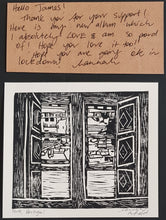 Hello James!
Thank you for your support!
Here is my new album which
I absolutely LOVE & am so proud
of! Hope you love it too!
Hope you are going ok in
lockdown! Hannah